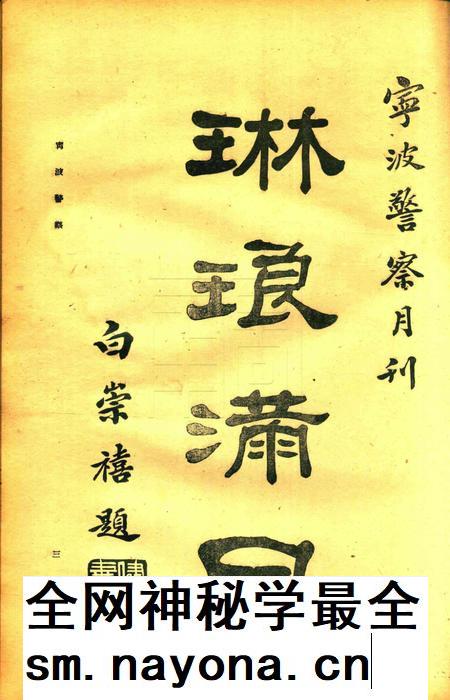 寧波警察月刊
琳琅滿目
白崇禧題
寧波警察
三
全网神秘学最全
sm.nayona.cn